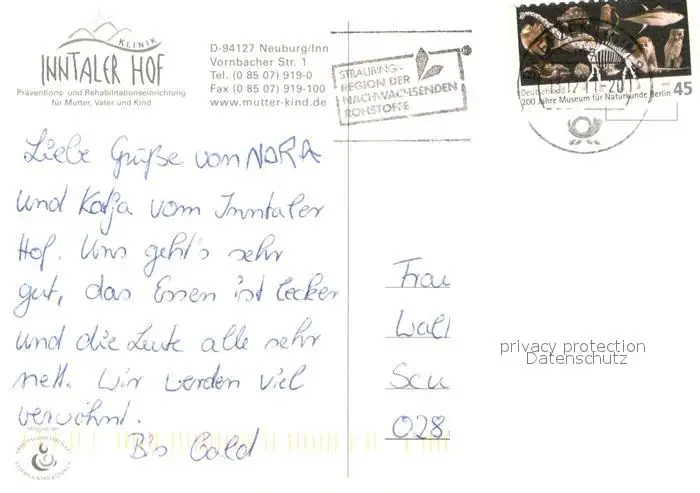 KLINIK
INNTALER HOF
Präventions- und Rehabilitationseinrichtung
für Mutter, Vater und Kind
D-94127 Neuburg/Inn
Vornbacher Str. 1
Tel. (0 85 07) 919-0
Fax (0 85 07) 919-100
www.mutter-kind.de
STRAUBING-
REGION DER
NACHWACHSENDEN
ROHSTOFFE
Deutschland
200 Jahre Museum für Naturkunde Berlin
45
Liebe Grüße vom NORA
und Katja vom Inntaler
Hof. Uns geht's sehr
gut, das Essen ist lecker
und die Leute alle sehr
nett. Wir werden viel
verwöhnt.
Bis Bald
Frau
Wall
Scu
028
privacy protection
Datenschutz